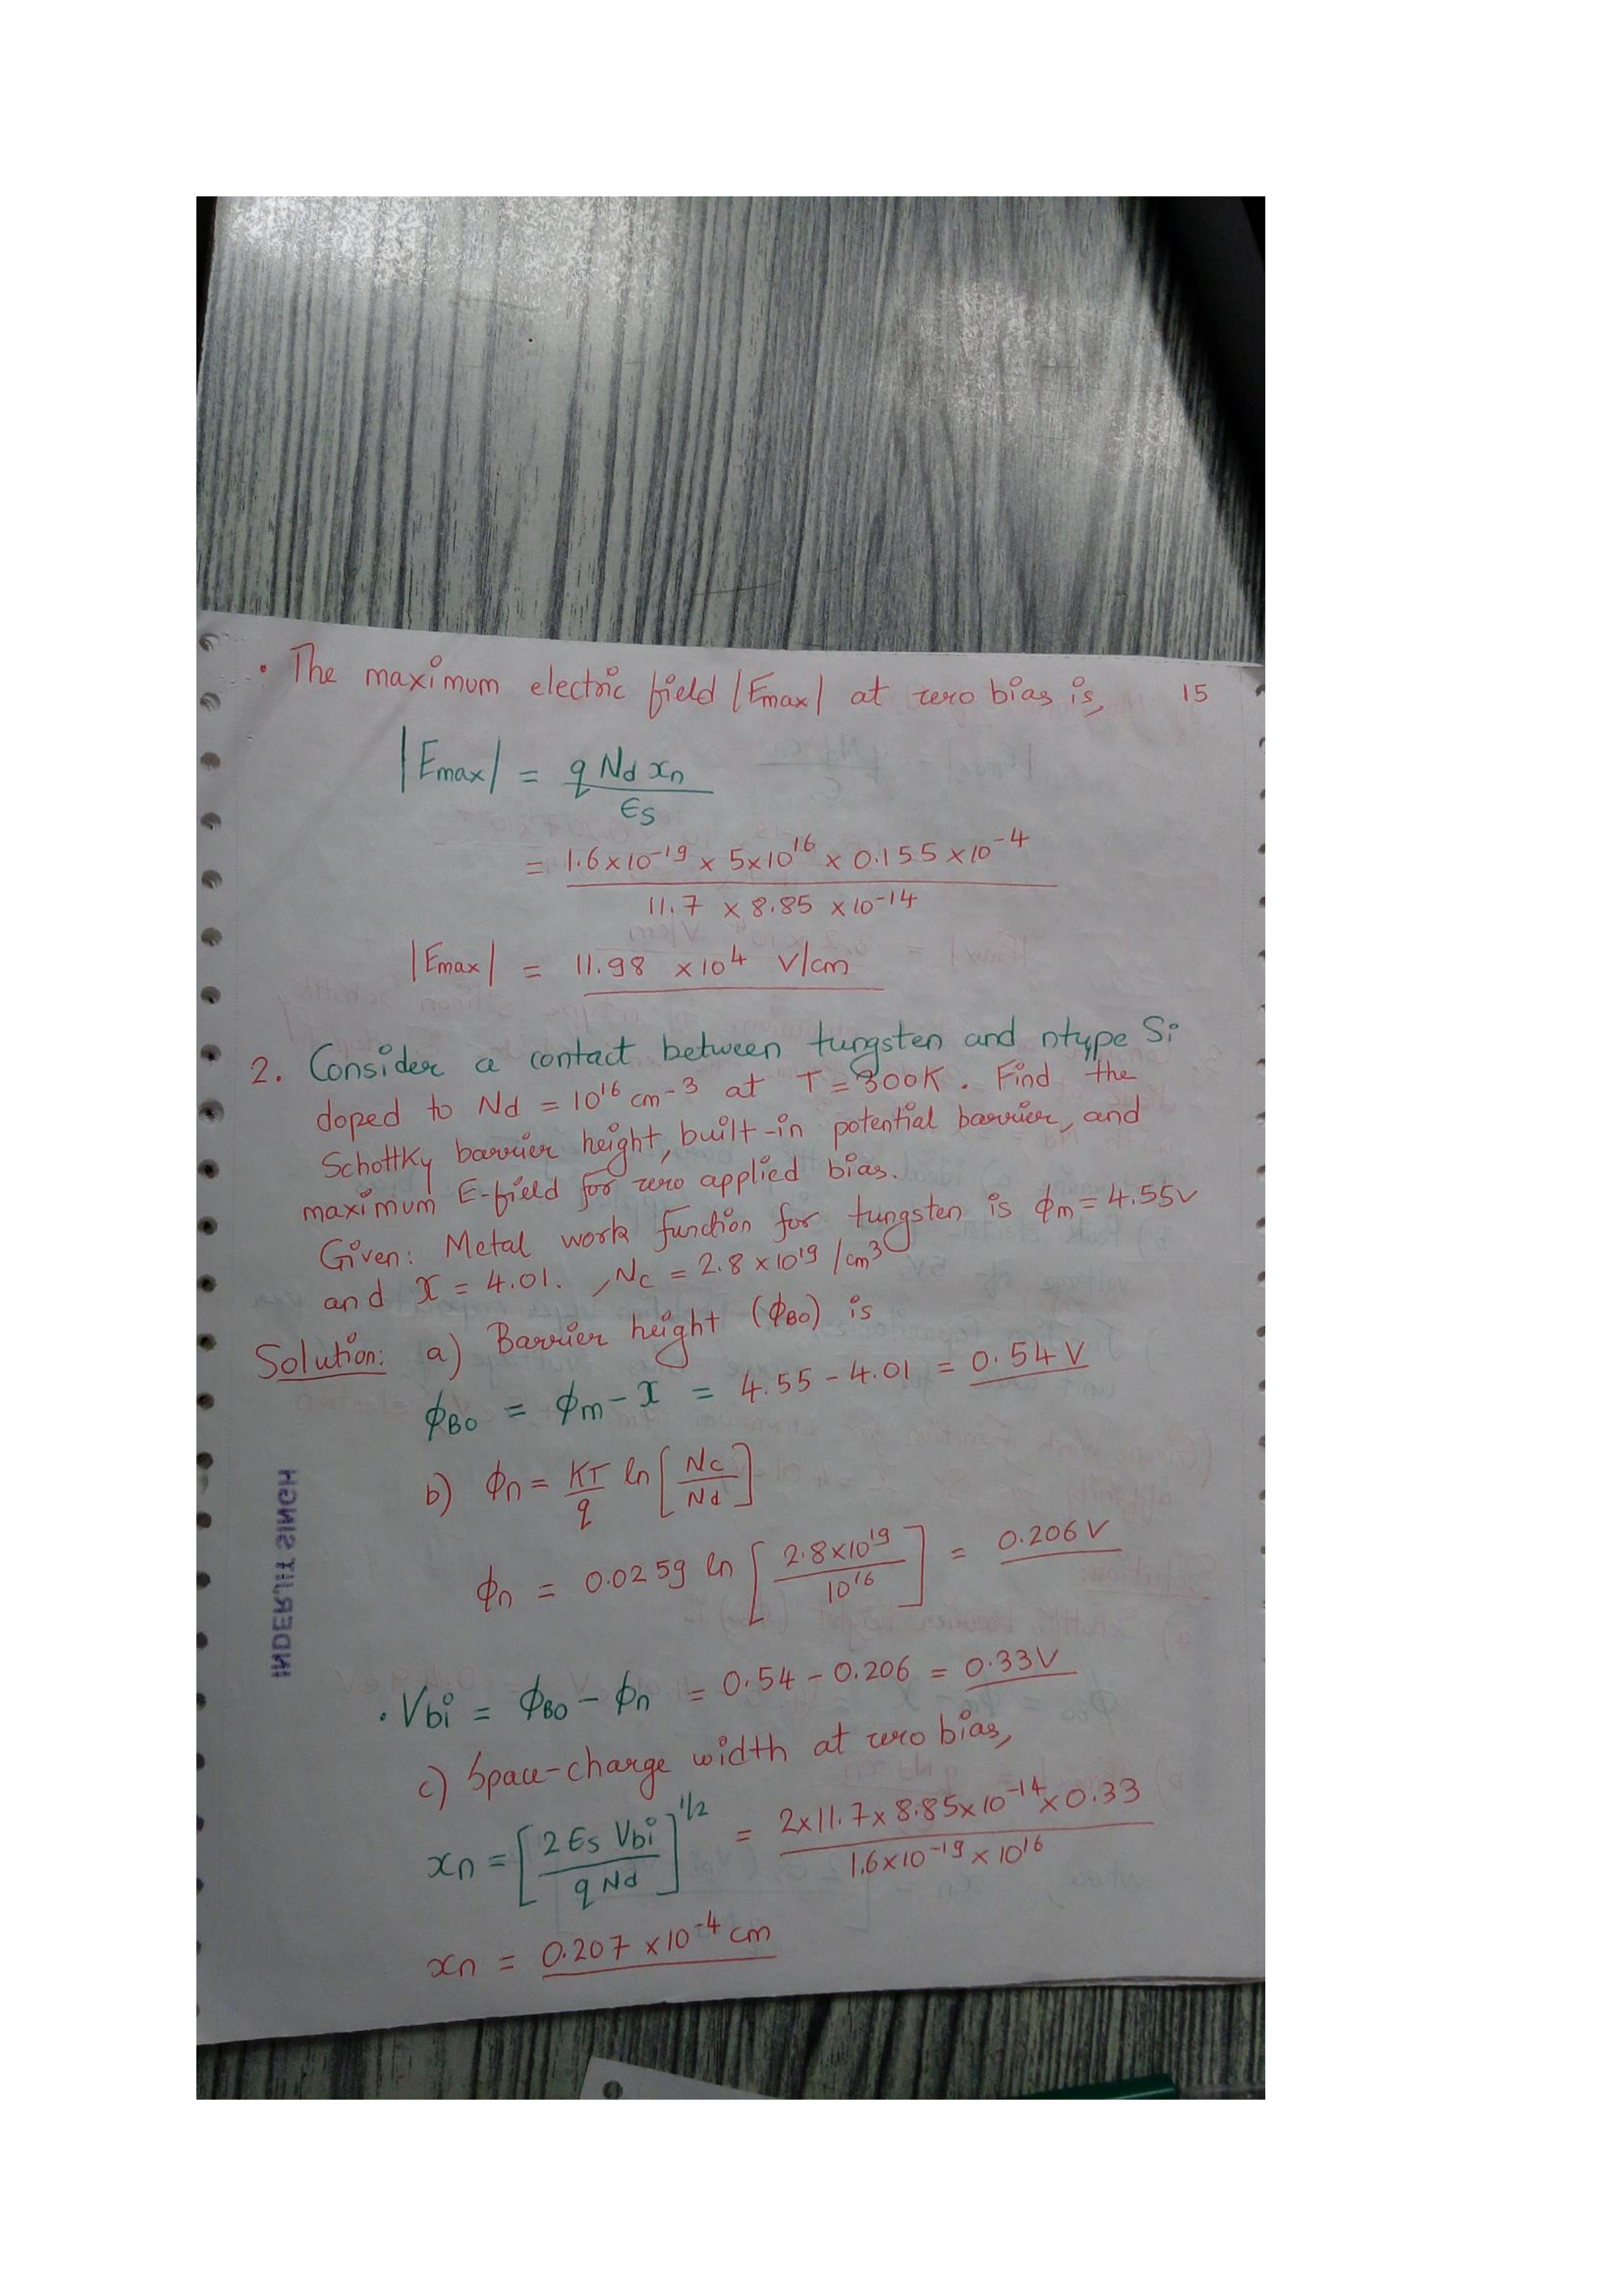 • The maximum electric field |Emax| at zero bias is, 15
|Emax| = q Nd xn / ϵs
= 1.6×10⁻¹⁹ × 5×10¹⁶ × 0.155 ×10⁻⁴ / 11.7 × 8.85 ×10⁻¹⁴
|Emax| = 11.98 ×10⁴ V/cm
2. Consider a contact between tungsten and ntype Si
doped to Nd = 10¹⁶ cm-3 at T = 300K. Find the
Schottky barrier height, built-in potential barrier, and
maximum E-field for zero applied bias.
Given: Metal work function for tungsten is ϕm = 4.55V
and χ = 4.01. , Nc = 2.8 × 10¹⁹ /cm³
Solution: a) Barrier height (ϕB0) is
ϕB0 = ϕm - χ = 4.55 - 4.01 = 0.54 V
b) ϕn = KT/q ln [Nc/Nd]
ϕn = 0.0259 ln [2.8×10¹⁹ / 10¹⁶] = 0.206 V
• Vbi = ϕB0 - ϕn = 0.54 - 0.206 = 0.33V
c) Space-charge width at zero bias,
xn = [2 ϵs Vbi / q Nd]^1/2 = 2×11.7× 8.85×10⁻¹⁴×0.33 / 1.6×10⁻¹⁹ × 10¹⁶
xn = 0.207 ×10⁻⁴ cm
INDERJIT SINGH